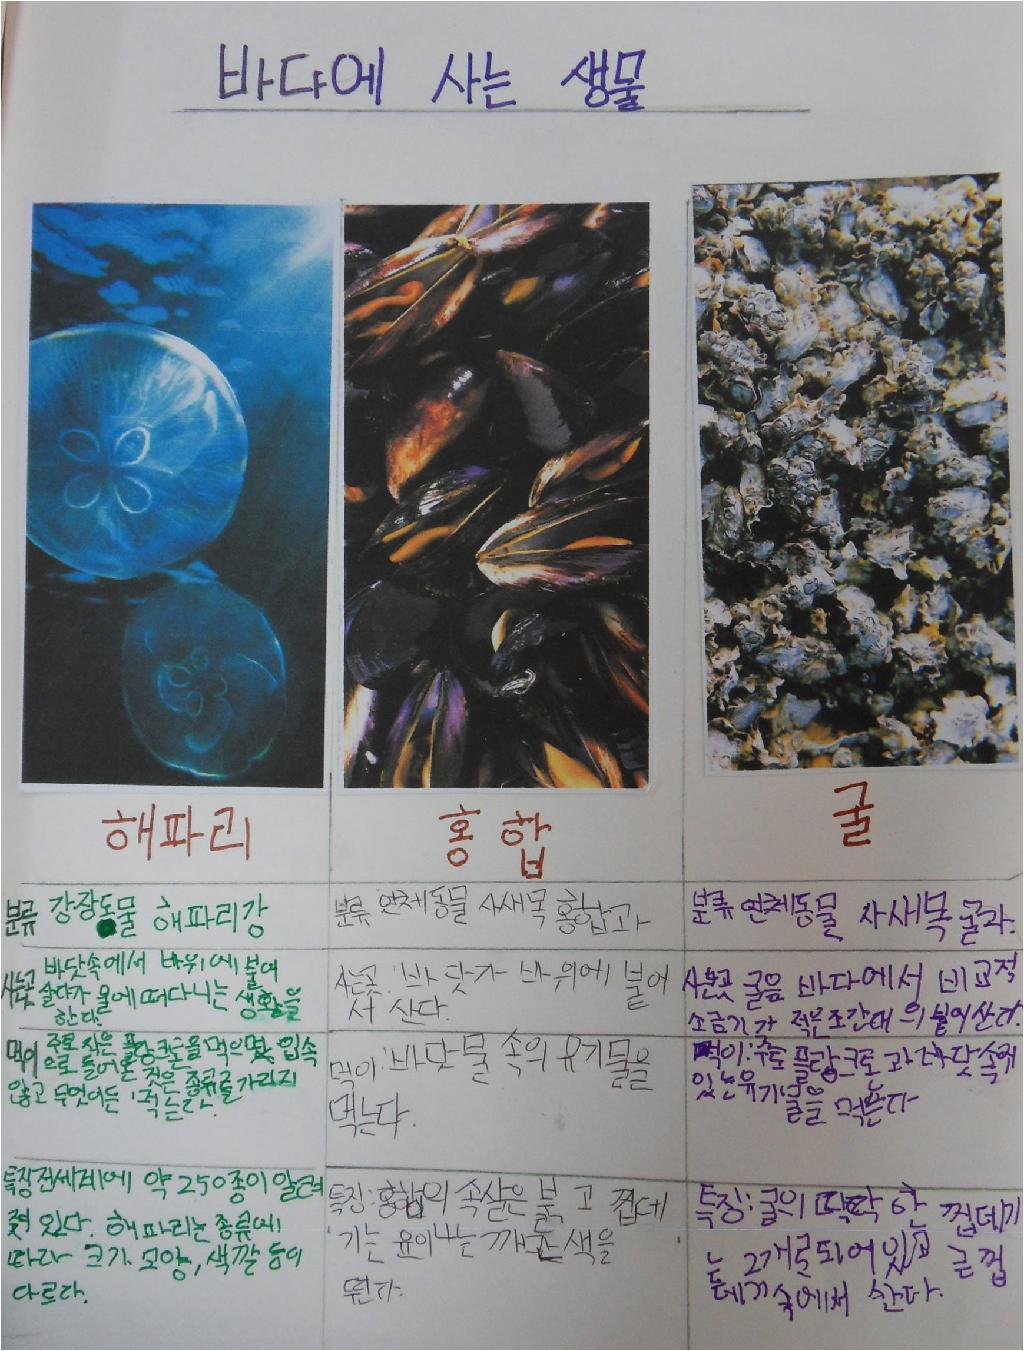 바다에 사는 생물
해파리
홍합
굴
분류 강장동물 해파리강
사는곳 바닷속에서 바위에 붙어
살다가 물에 떠다니는 생활을
한다.
먹이 주로 작은 플랑크톤을 먹으며 입속
으로 들어온 것은 종류를 가리지
않고 무엇이든 먹는다.
특징 전세계에 약 250종이 알려
져 있다. 해파리는 종류에
따라 크기, 모양, 색깔 등이
다르다.
분류 연체동물 사새목 홍합과
사는곳: 바닷가 바위에 붙어
서 산다.
먹이: 바닷물 속의 유기물을
먹는다.
특징: 홍합의 속살은 붉고 껍데
기는 윤이나는 깨끗 색을
띈다.
분류 연체동물 사새목 굴과.
사는곳 굴은 바다에서 비교적
소금기가 적은 조간대의 붙어산다.
먹이: 주로 플랑크톤과 바닷속에
있는 유기물을 먹는다
특징: 굴의 딱딱한 껍데기
는 2개로 되어있고 굴은 껍
데기 속에서 산다.